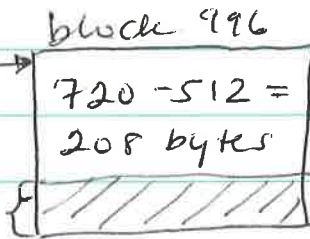 block 996
720 - 512 =
208 bytes